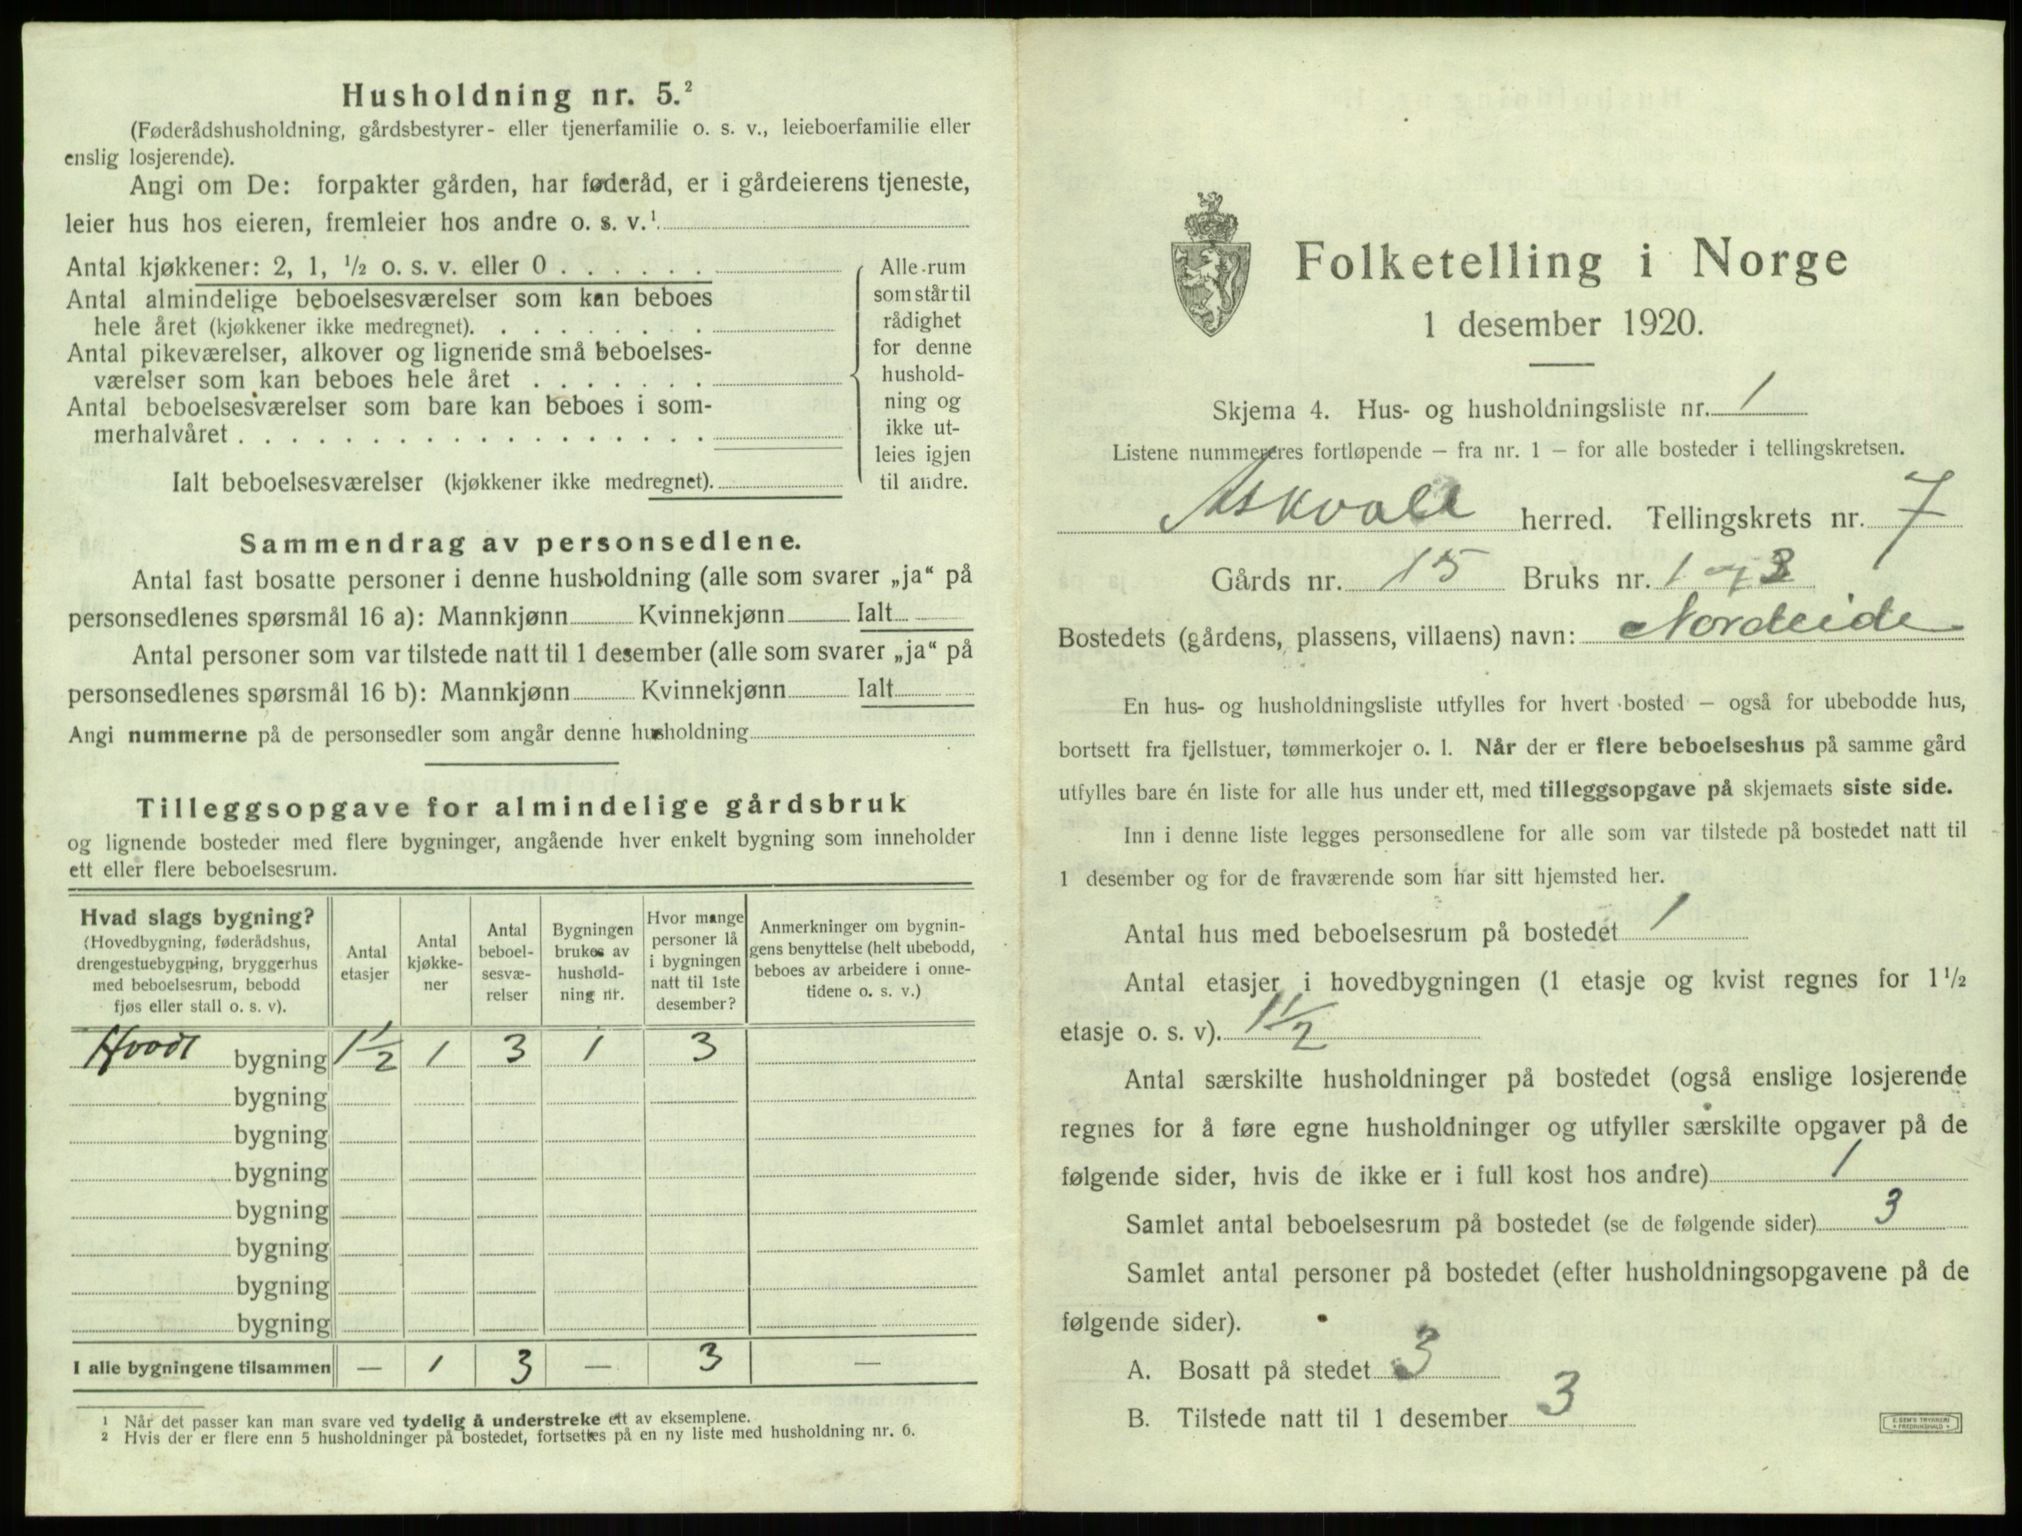 Husholdning nr. 5.²
(Føderådshusholdning, gårdsbestyrer- eller tjenerfamilie o. s. v., leieboerfamilie eller
enslig losjerende).
Angi om De: forpakter gården, har føderåd, er i gårdeierens tjeneste,
leier hus hos eieren, fremleier hos andre o. s. v.¹
Antal kjøkkener: 2, 1, ½ o. s. v. eller 0 . . . . . .
Antal almindelige beboelsesværelser som kan beboes
hele året (kjøkkener ikke medregnet). . . . . . . . .
Antal pikeværelser, alkover og lignende små beboelses-
værelser som kan beboes hele året . . . . . . .
Antal beboelsesværelser som bare kan beboes i som-
merhalvåret . . . . . . . . . . . . . . . . . .
Ialt beboelsesværelser (kjøkkener ikke medregnet).
Alle rum
som står til
rådighet
for denne
hushold-
ning og
ikke ut-
leies igjen
til andre.
Sammendrag av personsedlene.
Antal fast bosatte personer i denne husholdning (alle som svarer „ja“ på
personsedlenes spørsmål 16 a): Mannkjønn Kvinnekjønn Ialt
Antal personer som var tilstede natt til 1 desember (alle som svarer „ja“ på
personsedlenes spørsmål 16 b): Mannkjønn Kvinnekjønn Ialt
Angi nummerne på de personsedler som angår denne husholdning
Tilleggsopgave for almindelige gårdsbruk
og lignende bosteder med flere bygninger, angående hver enkelt bygning som inneholder
ett eller flere beboelsesrum.
Hvad slags bygning?
(Hovedbygning, føderådshus,
drengestuebygning, bryggerhus
med beboelsesrum, bebodd
fjøs eller stall o. s. v).
Antal
etasjer
Antal
kjøkke-
ner
Antal
beboel-
sesvæ-
relser
Bygningen
brukes av
hushold-
ning nr.
Hvor mange
personer lå
i bygningen
natt til 1ste
desember?
Anmerkninger om bygnin-
gens benyttelse (helt ubebodd,
beboes av arbeidere i onne-
tidene o. s. v.)
bygning 1½ 1 3 1 3
bygning
bygning
bygning
bygning
bygning
bygning
bygning
I alle bygningene tilsammen — 1 3 — 3 —
¹ Når det passer kan man svare ved tydelig å understreke ett av eksemplene.
² Hvis der er flere enn 5 husholdninger på bostedet, fortsettes på en ny liste med husholdning nr. 6.
Folketelling i Norge
1 desember 1920.
Skjema 4. Hus- og husholdningsliste nr. 1
Listene nummereres fortløpende – fra nr. 1 – for alle bosteder i tellingskretsen.
Askvoll herred. Tellingskrets nr. 7
Gårds nr. 15 Bruks nr. 1 og 3
Bostedets (gårdens, plassens, villaens) navn: Nordeide
En hus- og husholdningsliste utfylles for hvert bosted – også for ubebodde hus,
bortsett fra fjellstuer, tømmerkojer o. l. Når der er flere beboelseshus på samme gård
utfylles bare én liste for alle hus under ett, med tilleggsopgave på skjemaets siste side.
Inn i denne liste legges personsedlene for alle som var tilstede på bostedet natt til
1 desember og for de fraværende som har sitt hjemsted her.
Antal hus med beboelsesrum på bostedet 1
Antal etasjer i hovedbygningen (1 etasje og kvist regnes for 1½
etasje o. s. v). 1½
Antal særskilte husholdninger på bostedet (også enslige losjerende
regnes for å føre egne husholdninger og utfyller særskilte opgaver på de
følgende sider, hvis de ikke er i full kost hos andre) 1
Samlet antal beboelsesrum på bostedet (se de følgende sider) 3
Samlet antal personer på bostedet (efter husholdningsopgavene på de
følgende sider).
A. Bosatt på stedet 3
B. Tilstede natt til 1 desember 3
E. SEM'S TRYKKERI
FREDRIKSHALD